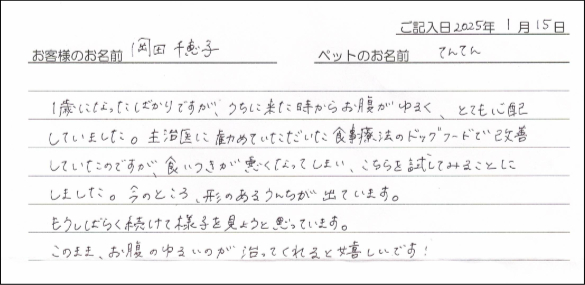 ご記入日2025年 1月 15日
お客様のお名前 岡田 千恵子 ペットのお名前 てんてん
1歳になったばかりですが、うちに来た時からお腹がゆるく、とても心配
していました。主治医に勧めていただいた食事療法のドッグフードで改善
していたのですが、食いつきが悪くなってしまい、こちらを試してみることに
しました。今のところ、形のあるうんちが出ています。
もうしばらく続けて様子を見ようと思っています。
このまま、お腹のゆるいのが治ってくれると嬉しいです!